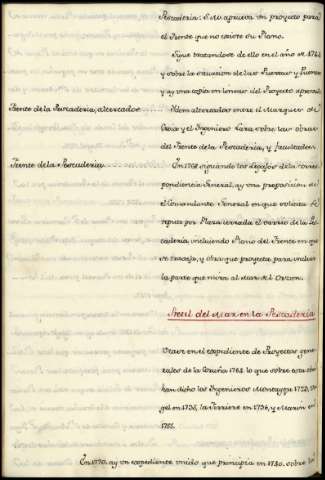 Pescaderia: S.M. aprueva un proyecto para
el Frente que no existe su Plano.
Sigue tratandose de ello en el año de 174
y sobre la extension de las Puertas y Puentes
y ay una copia en limpio del Proyecto aprova
Frente de la Pescaderia, altercados Idem altercados entre el Marques de
y el Ingeniero Lara sobre las obras
del Frente de la Pescaderia, y facultades
Frente de la Pescaderia En 1768 siguiendo los Legajos de la Corres
pondiencia General, ay una proposicion de
el Comandante General en que solicita se
repute por Plaza cerrada el varrio de la Pes
caderia, incluiendo Plano del Frente en que
se travaja, y obras que proyecta para incluir
la parte que mira al Mar del Orzan.
Pretil del Mar en la Pescaderia
Vease en el expediente de Proyectos gene
rales de la Coruña 1768 lo que sobre este
han dicho los Ingenieros Montaigu 1722,
gel en 1736, la Ferriere en 1736, y Marin en
1755.
En 1730 ay un expediente unido que principia en 1730 sobre